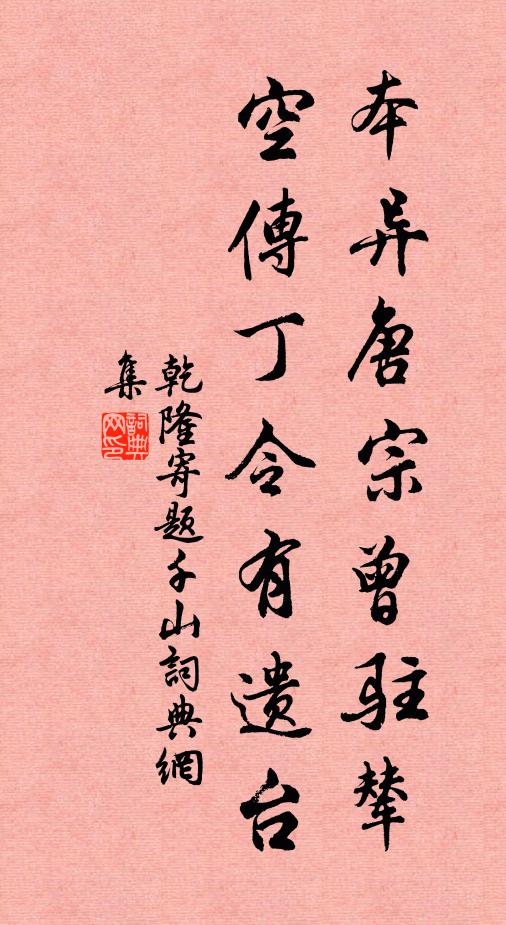 本异唐宗曾驻辇
空傳丁令有遗台
乾隆寄题千山詞典網
集
詞典
网印